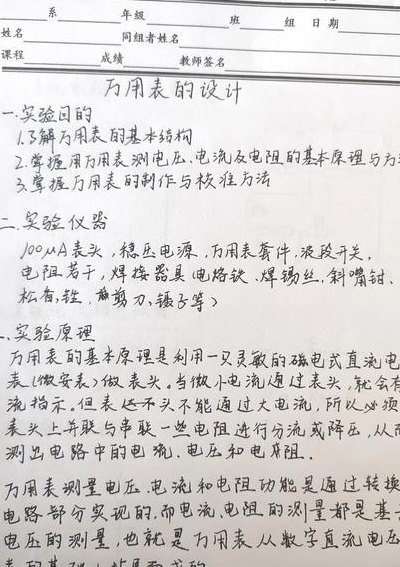 系 年级 班 组 日期
姓名 同组者姓名
课程 成绩 教师签名
万用表的设计
一.实验目的
1.了解万用表的基本结构
2.掌握用万用表测电压、电流及电阻的基本原理与方法
3.掌握万用表的制作与校准方法
二.实验仪器
100μA表头,稳压电源,万用表套件,波段开关,
电阻若干,焊接器具(电烙铁、焊锡丝,斜嘴钳、
松香,锉,剪刀、镊子等)
、实验原理
万用表的基本原理是利用一只灵敏的磁电式直流电
表(微安表)做表头。当微小电流通过表头,就会有
流指示。但表头不能通过大电流,所以必须
表头上并联与串联一些电阻进行分流或降压,从而
测出电路中的电流、电压和电阻.
万用表测量电压、电流和电阻功能是通过转换
电路部分实现的,而电流、电阻的测量都是基于
电压的测量,也就是万用表从数字直流电压